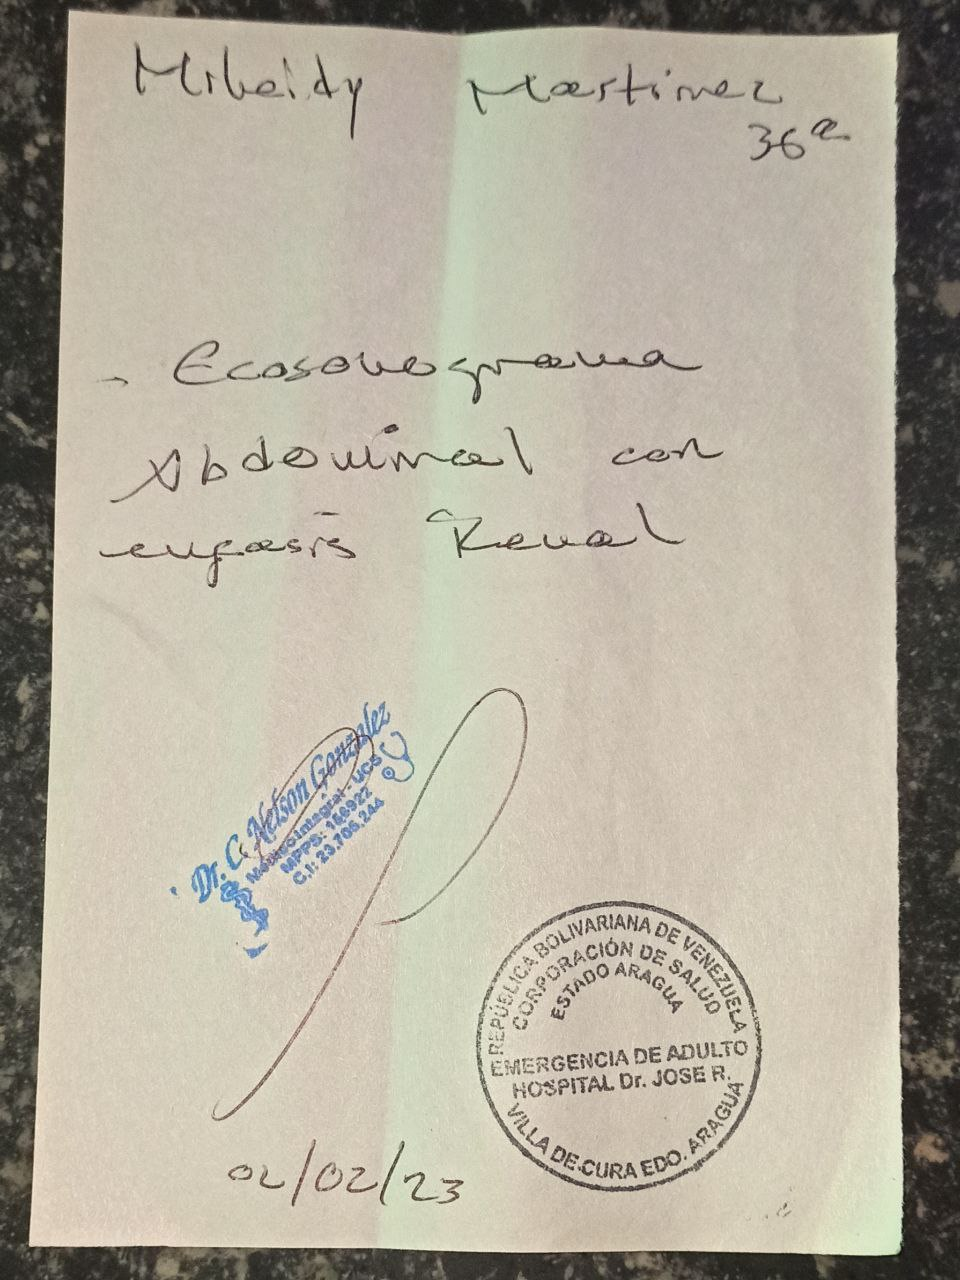 Mileidy Martinez
36a
- Ecosonograma
Abdominal con
enfasis Renal
Dr. C. Nelson González
Médico Integral - UCS
MPPS: 156922
C.I: 23.706.244
REPÚBLICA BOLIVARIANA DE VENEZUELA
CORPORACIÓN DE SALUD
ESTADO ARAGUA
EMERGENCIA DE ADULTO
HOSPITAL Dr. JOSE R.
VILLA DE CURA EDO. ARAGUA
02/02/23